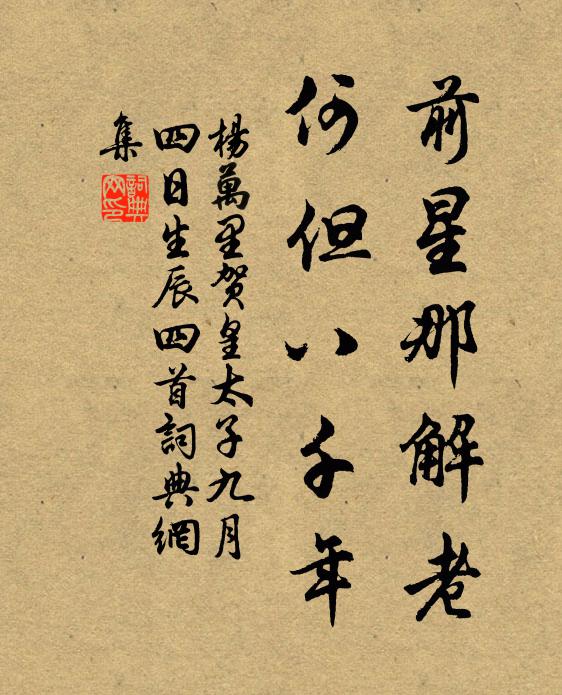 前星那解老
何但八千年
楊萬里賀皇太子九月
四日生辰四首詞典網
集
詞典
网印